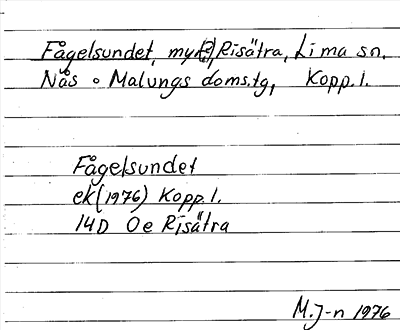 Fågelsundet, myr(?), Risätra, Lima sn.
Nås o Malungs doms.tg, Kopp. l.
Fågelsundet
ek (1976) Kopp. l.
14D 0e Risätra
M.J-n 1976